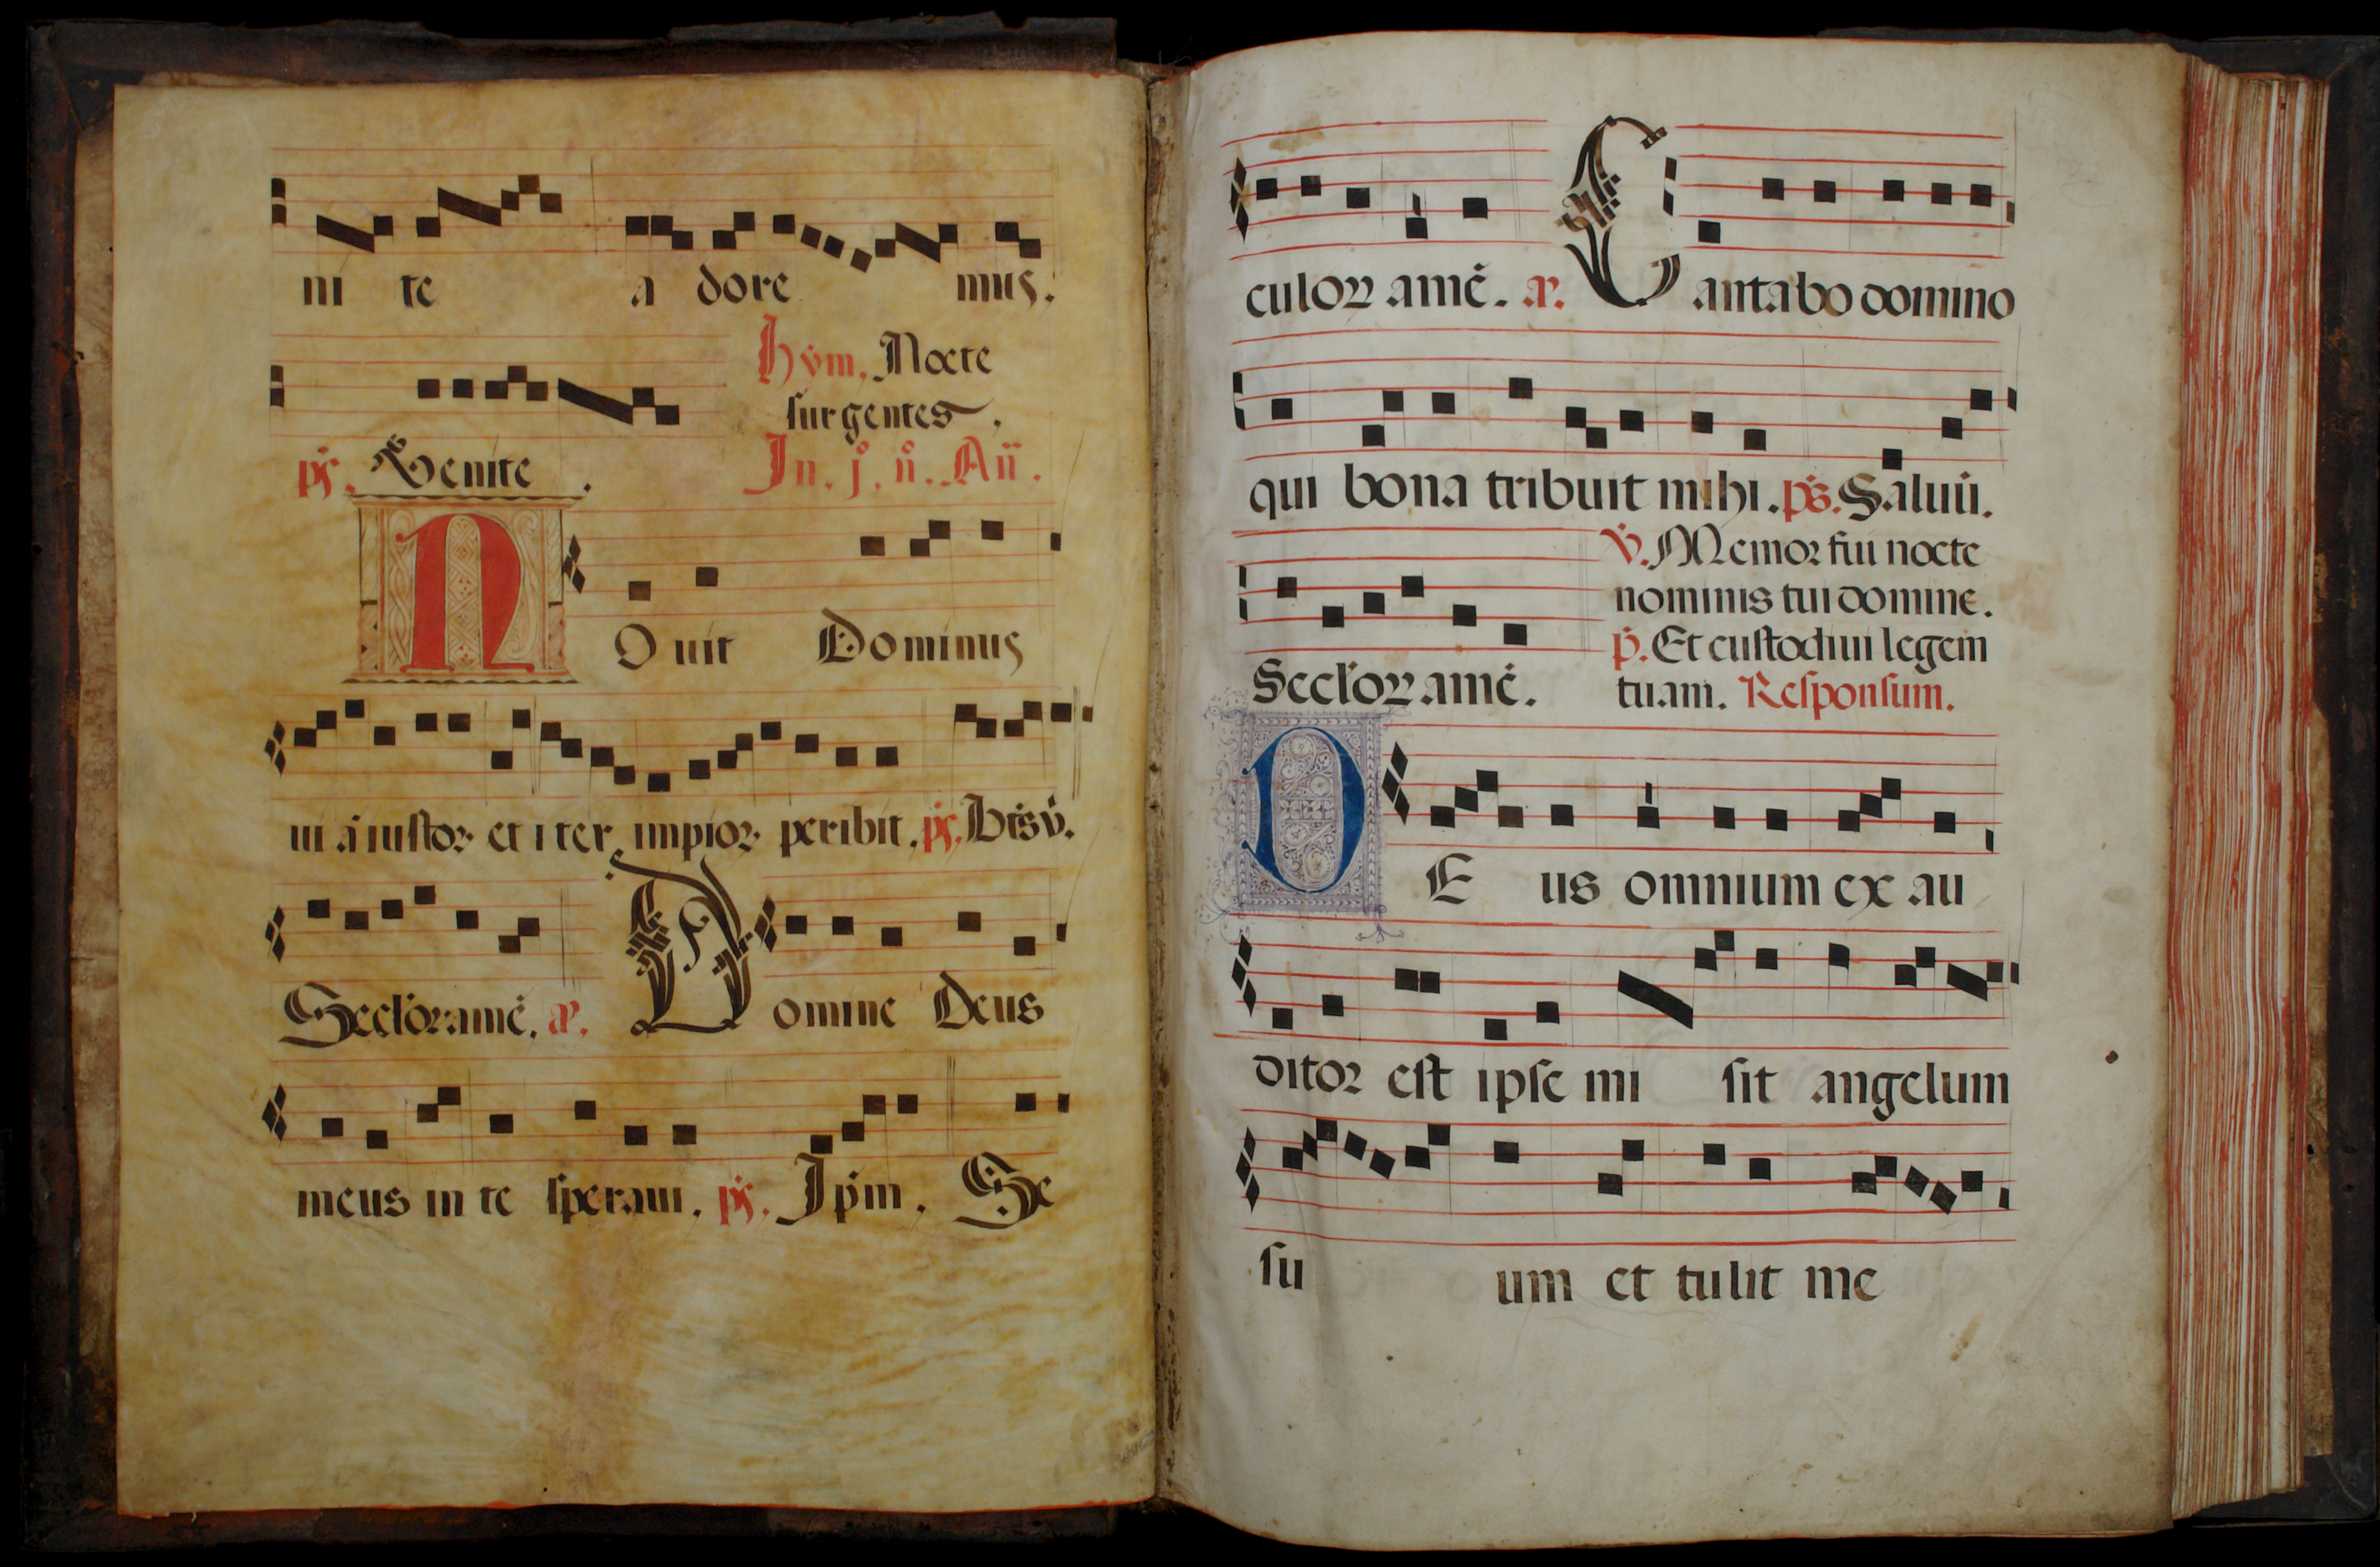 ni te a dore mus.
Hym, Nocte
surgentes.
ps. Venite. In. j. n. Añ.
N O uit Dominus
ui ā iustoꝝ et iter impioꝝ peribit. ps. Btsv̄.
Secl'oꝝ amē. añ. Domine Deus
meus in te speraui. ps. Ip̄m. Se
culoꝝ amē. añ. Cantabo domino
qui bona tribuit mihi. ps. Saluū.
v. Memor fui nocte
nominis tui domine.
p. Et custodiui legem
Secl'oꝝ amē. tuam. Responsum.
D E us omnium ex au
ditor est ipse mi sit angelum
su um et tulit me